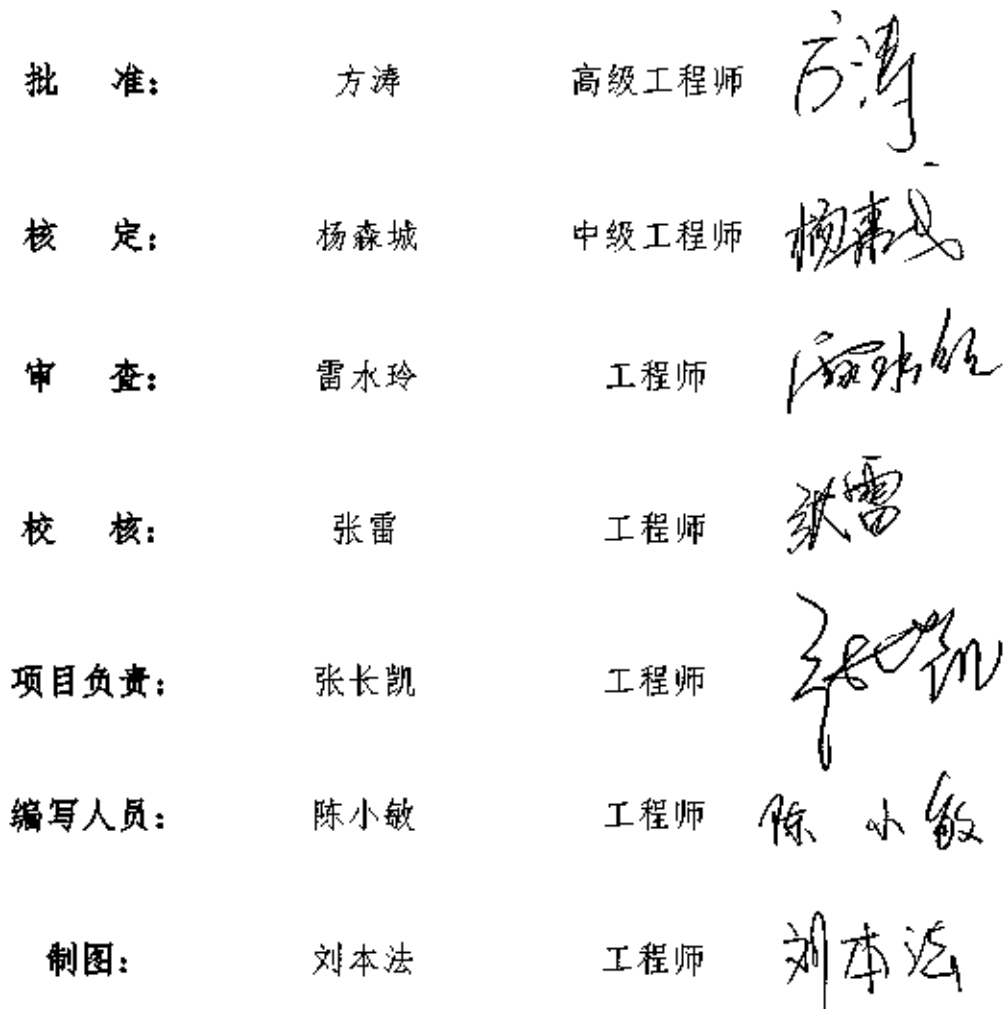 批 准： 方涛 高级工程师 方涛
核 定： 杨森城 中级工程师 杨森城
审 查： 雷水玲 工程师
校 核： 张雷 工程师 张雷
项目负责： 张长凯 工程师 张长凯
编写人员： 陈小敏 工程师 陈小敏
制图： 刘本法 工程师 刘本法